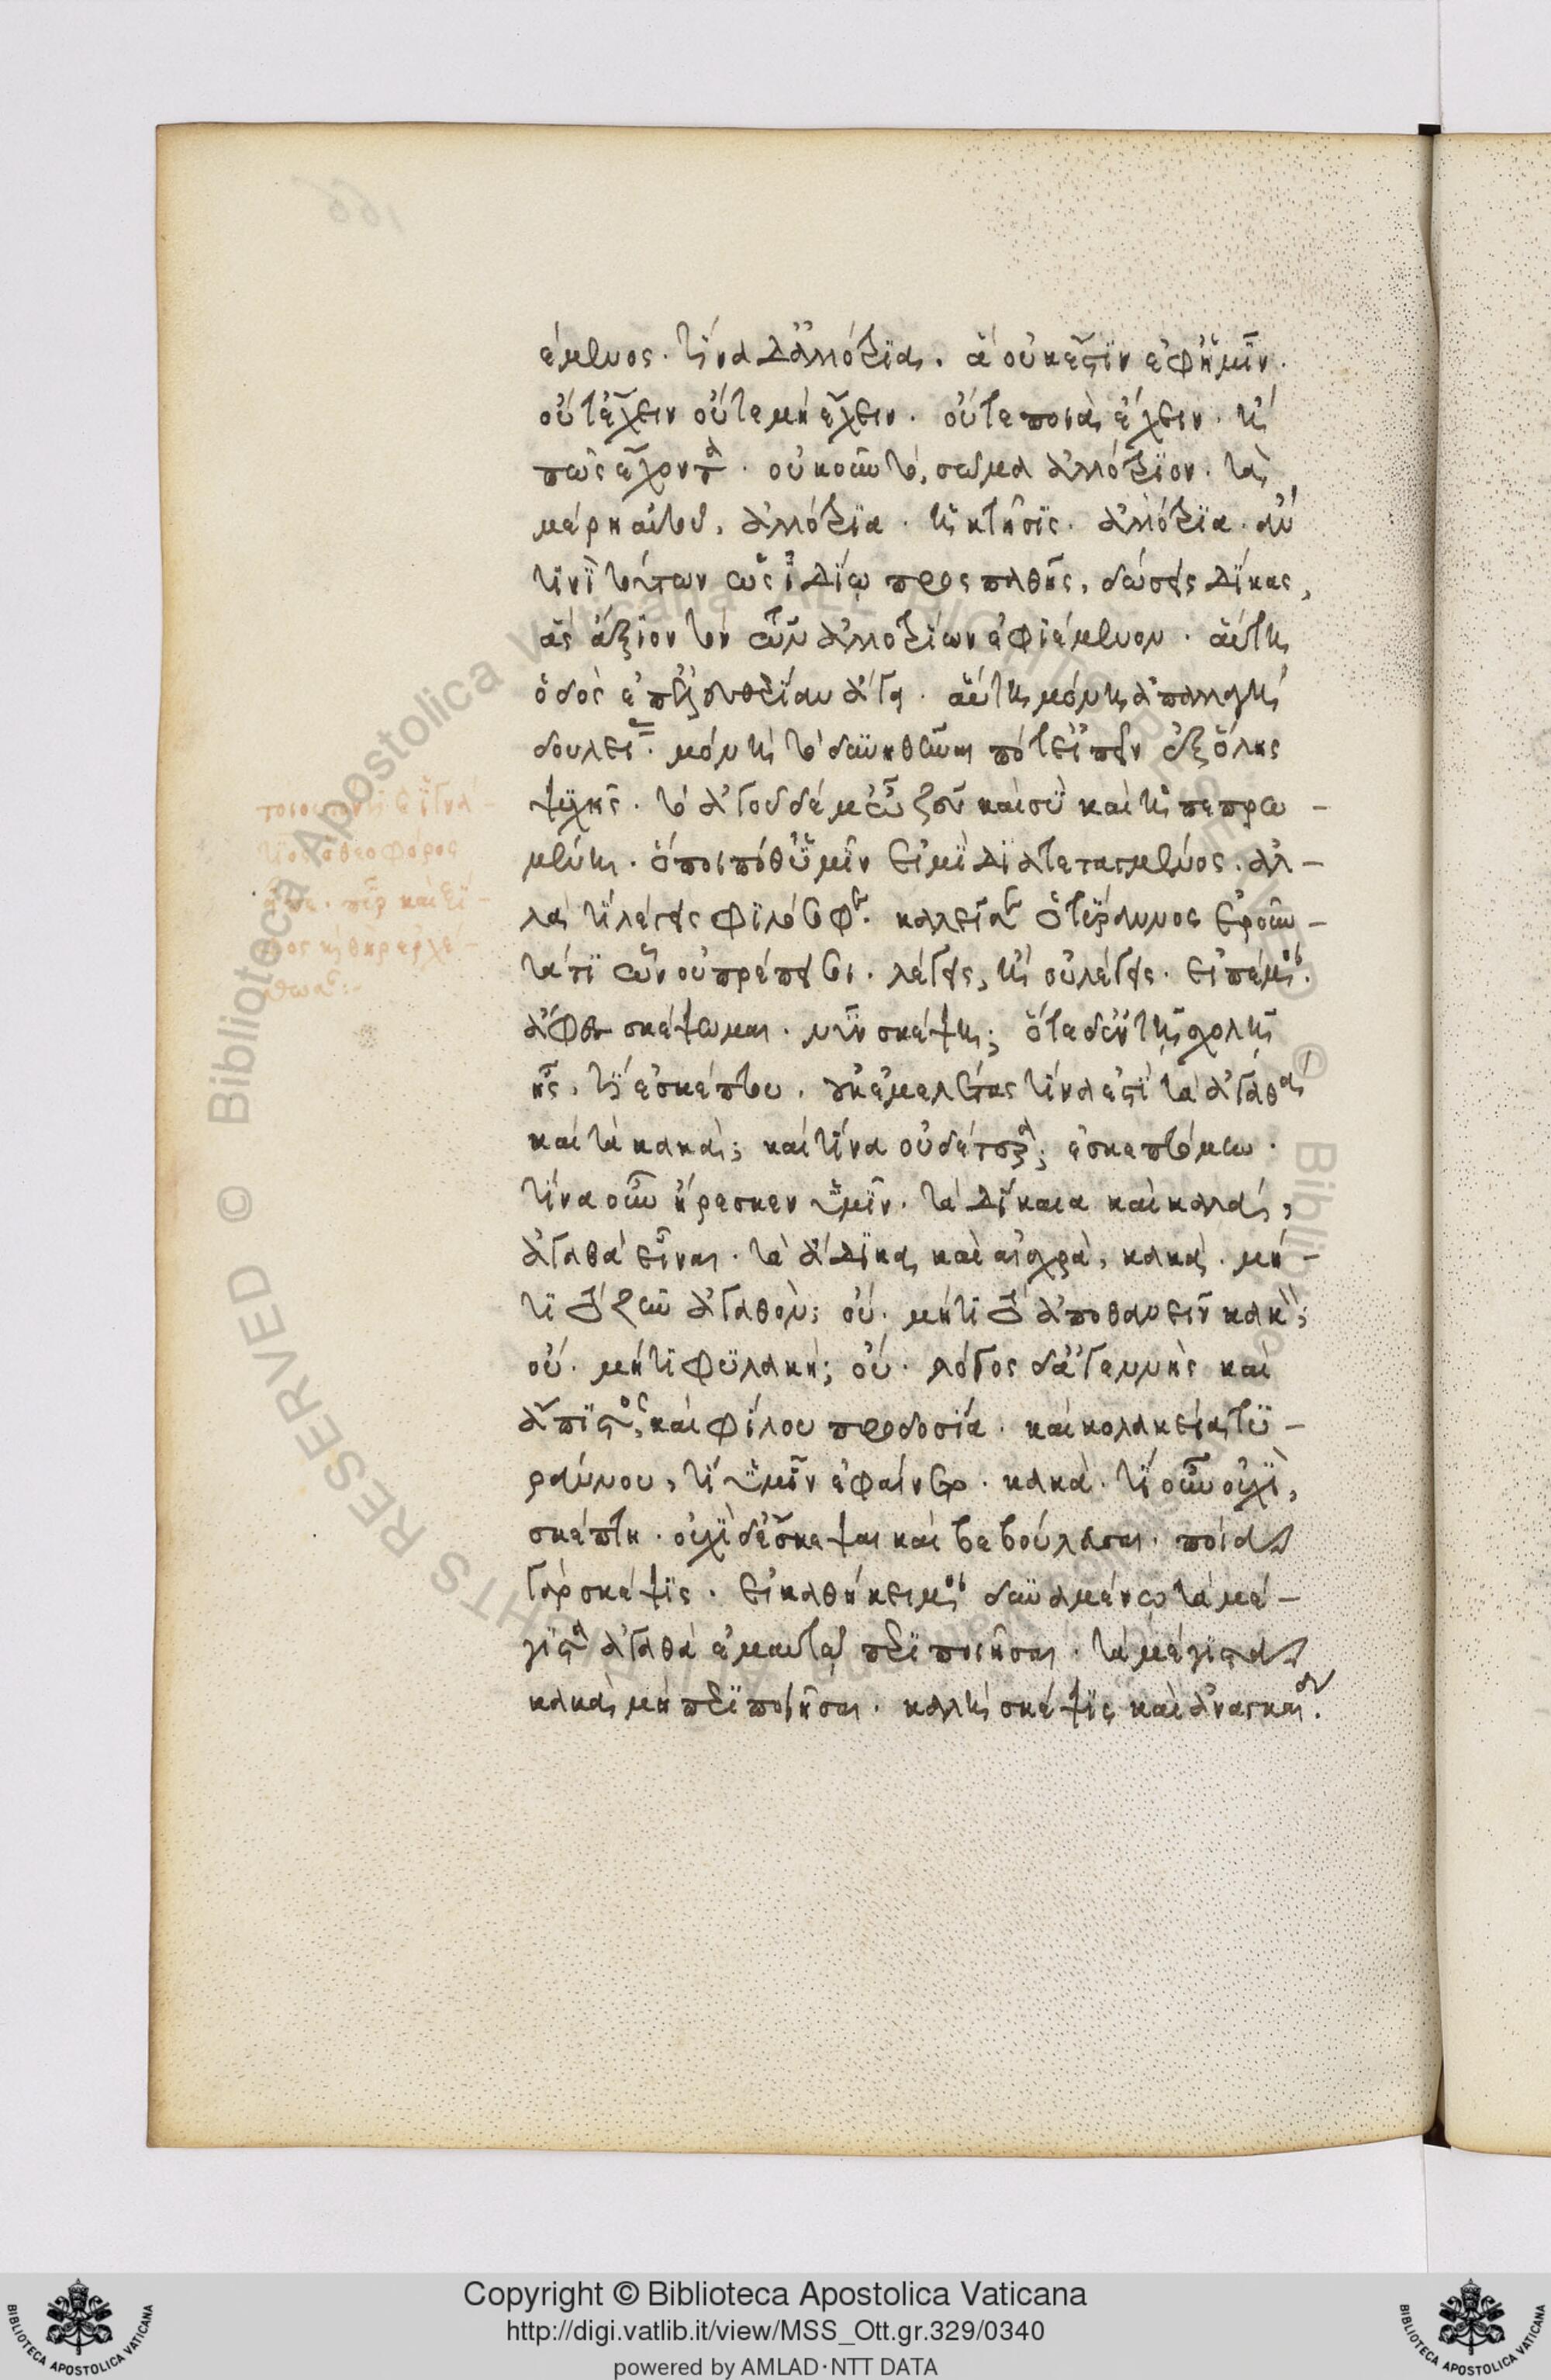 έμενος. τίνα δ' ἀλλότρια. ἃ οὐκ ἔστιν ἐφ' ἡμῖν.
οὔτ' ἔχειν οὔτε μὴ ἔχειν. οὔτε ποιὰ ἔχειν. ἢ
πῶς ἔχοντα. οὐκοῦν τὸ σῶμα ἀλλότριον. τὰ
μέρη αὐτοῦ, ἀλλότρια. ἡ κτῆσις. ἀλλότρια. ἄν
τινι τούτων ὡς ἰδίῳ προσπαθῇς, δώσεις δίκας,
ἃς ἄξιον τὸν τῶν ἀλλοτρίων ἐφιέμενον. αὕτη
ὁδὸς ἐπ' ἐλευθερίαν ἄγει. αὕτη μόνη ἀπαλλαγὴ
δουλείας. μόνη τὸ δυνηθῆναι ποτ' εἰπεῖν ἐξ ὅλης
ψυχῆς. τὸ ἄγου δέ μ' ὦ ζεῦ καὶ σὺ καὶ ἡ πεπρω-
μένη. ὅποι ποθ' ὑμῖν εἰμὶ διατεταγμένος. ἀλ-
λὰ τί λέγεις φιλόσοφε. καλεῖ σε ὁ τύραννος ἐροῦν-
τά τι ὧν οὐ πρέπει σοι. λέγεις, ἢ οὐ λέγεις. εἰπέ μοι.
ἄφες σκέψωμαι. νῦν σκέψῃ; ὅτε δ' ἐν τῇ σχολῇ
ἦς, τί ἐσκέπτου. οὐκ ἐμελέτας τίνα ἐστὶ τὰ ἀγαθὰ
καὶ τὰ κακά; καὶ τίνα οὐδέτερα; ἐσκεπτόμην.
τίνα οὖν ἤρεσκεν ὑμῖν. τὰ δίκαια καὶ καλὰ,
ἀγαθὰ εἶναι. τὰ ἄδικα καὶ αἰσχρὰ, κακά. μή-
τι τὸ ζῆν ἀγαθόν; οὔ. μήτι τὸ ἀποθανεῖν κακόν;
οὔ. μήτι φυλακή; οὔ. λόγος δ' ἀγεννὴς καὶ
ἄπιστος, καὶ φίλου προδοσία. καὶ κολακεία τυ-
ράννου, τί ὑμῖν ἐφαίνετο. κακά. τί οὖν οὐχὶ,
σκέπτῃ. οὐχὶ δ' ἔσκεψαι καὶ βεβούλευσαι. ποία
γὰρ σκέψις. εἰ καθήκει μοι δυναμένῳ τὰ μέ-
γιστα ἀγαθὰ ἐμαυτῷ περιποιῆσαι. τὰ μέγιστα
κακὰ μὴ περιποιῆσαι. καλὴ σκέψις καὶ ἀναγκαία.
Copyright © Biblioteca Apostolica Vaticana
http://digi.vatlib.it/view/MSS_Ott.gr.329/0340
powered by AMLAD·NTT DATA